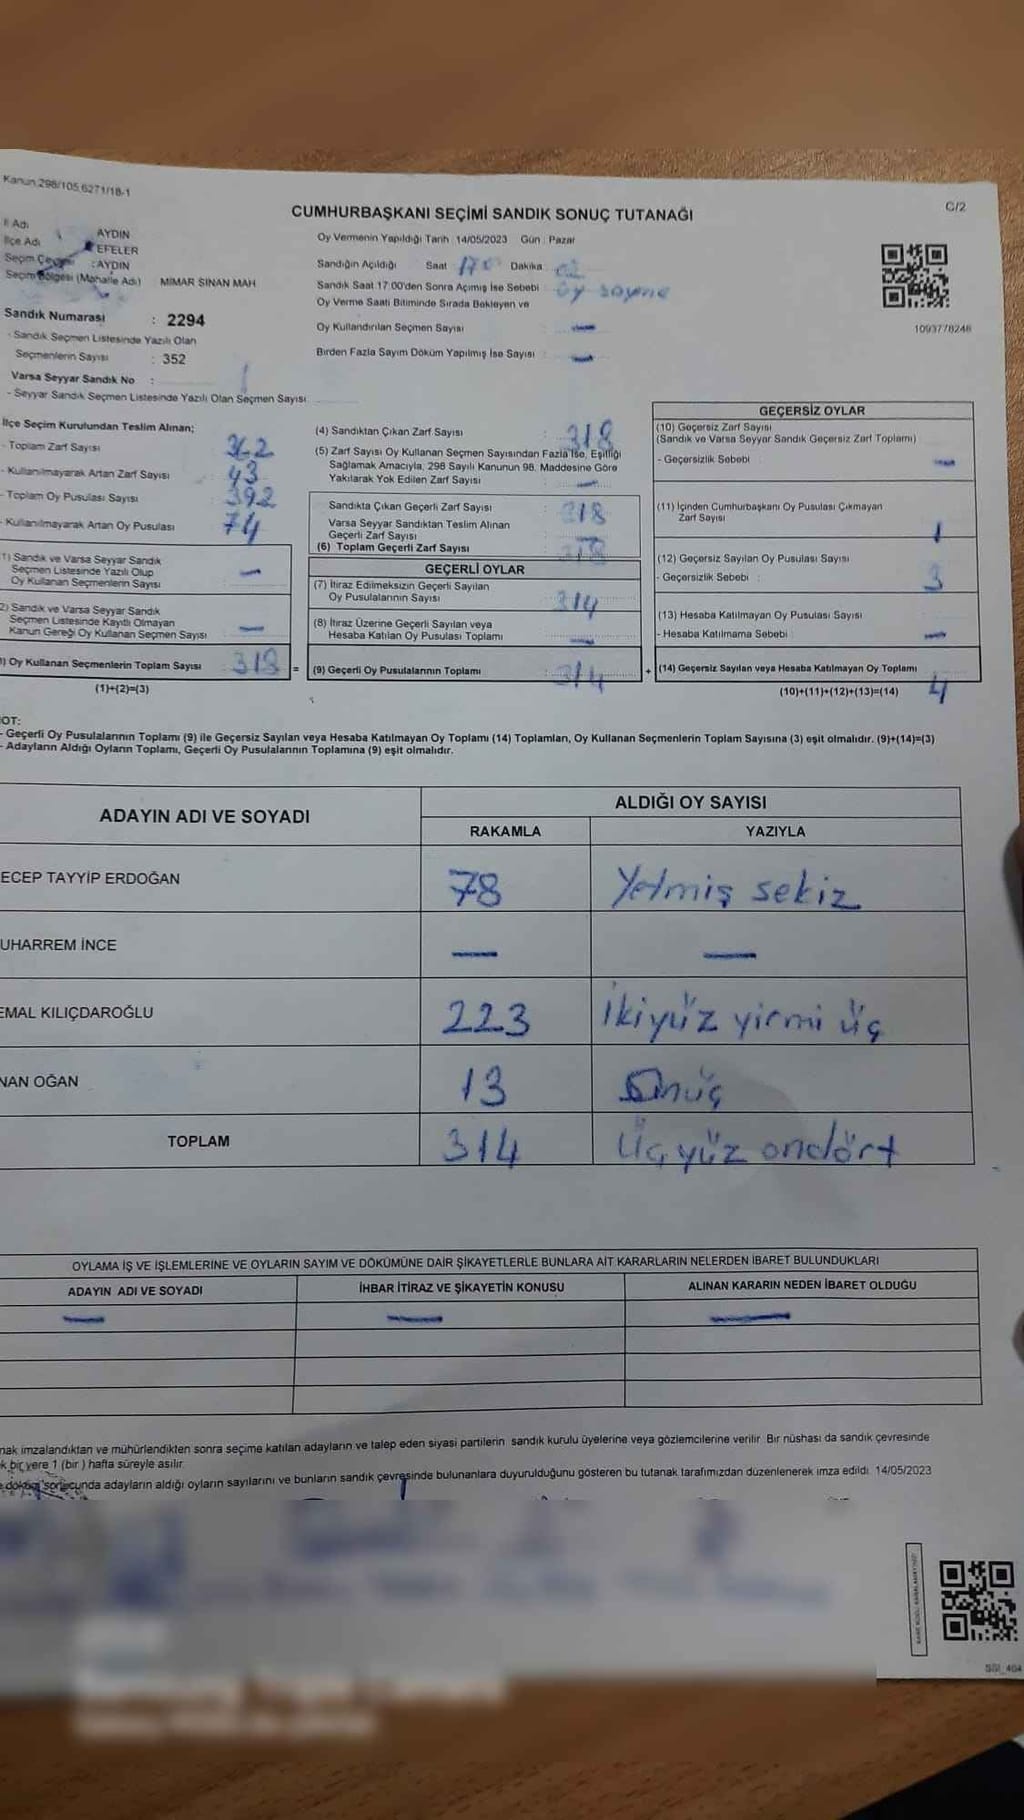 Kanun:298/105,6271/18-1
C/2
CUMHURBAŞKANI SEÇİMİ SANDIK SONUÇ TUTANAĞI
İl Adı AYDIN
İlçe Adı EFELER
Seçim Çevresi : AYDIN
Seçim Bölgesi (Mahalle Adı) MİMAR SİNAN MAH
Sandık Numarası : 2294
- Sandık Seçmen Listesinde Yazılı Olan
Seçmenlerin Sayısı : 352
Varsa Seyyar Sandık No :
- Seyyar Sandık Seçmen Listesinde Yazılı Olan Seçmen Sayısı
Oy Vermenin Yapıldığı Tarih 14/05/2023 Gün : Pazar
Sandığın Açıldığı Saat Dakika
Sandık Saat 17:00'den Sonra Açımış İse Sebebi
Oy Verme Saati Bitiminde Sırada Bekleyen ve
Oy Kullandırılan Seçmen Sayısı —
Birden Fazla Sayım Döküm Yapılmış İse Sayısı —
1093778248
İlçe Seçim Kurulundan Teslim Alınan;
- Toplam Zarf Sayısı 362
- Kullanılmayarak Artan Zarf Sayısı 43
- Toplam Oy Pusulası Sayısı 392
- Kullanılmayarak Artan Oy Pusulası 74
1) Sandık ve Varsa Seyyar Sandık
Seçmen Listesinde Yazılı Olup
Oy Kullanan Seçmenlerin Sayısı —
2) Sandık ve Varsa Seyyar Sandık
Seçmen Listesinde Kayıtlı Olmayan
Kanun Gereği Oy Kullanan Seçmen Sayısı —
) Oy Kullanan Seçmenlerin Toplam Sayısı 318 =
(1)+(2)=(3)
(4) Sandıktan Çıkan Zarf Sayısı : 318
(5) Zarf Sayısı Oy Kullanan Seçmen Sayısından Fazla İse, Eşitliği
Sağlamak Amacıyla, 298 Sayılı Kanunun 98. Maddesine Göre
Yakılarak Yok Edilen Zarf Sayısı —
Sandıkta Çıkan Geçerli Zarf Sayısı : 318
Varsa Seyyar Sandıktan Teslim Alınan
Geçerli Zarf Sayısı
(6) Toplam Geçerli Zarf Sayısı 318
GEÇERLİ OYLAR
(7) İtiraz Edilmeksizin Geçerli Sayılan
Oy Pusulalarının Sayısı 314
(8) İtiraz Üzerine Geçerli Sayılan veya
Hesaba Katılan Oy Pusulası Toplamı —
(9) Geçerli Oy Pusulalarının Toplamı 314 +
GEÇERSİZ OYLAR
(10) Geçersiz Zarf Sayısı
(Sandık ve Varsa Seyyar Sandık Geçersiz Zarf Toplamı)
- Geçersizlik Sebebi : —
(11) İçinden Cumhurbaşkanı Oy Pusulası Çıkmayan
Zarf Sayısı 1
(12) Geçersiz Sayılan Oy Pusulası Sayısı
- Geçersizlik Sebebi : 3
(13) Hesaba Katılmayan Oy Pusulası Sayısı
- Hesaba Katılmama Sebebi : —
(14) Geçersiz Sayılan veya Hesaba Katılmayan Oy Toplamı 4
(10)+(11)+(12)+(13)=(14)
OT:
- Geçerli Oy Pusulalarının Toplamı (9) ile Geçersiz Sayılan veya Hesaba Katılmayan Oy Toplamı (14) Toplamları, Oy Kullanan Seçmenlerin Toplam Sayısına (3) eşit olmalıdır. (9)+(14)=(3)
- Adayların Aldığı Oyların Toplamı, Geçerli Oy Pusulalarının Toplamına (9) eşit olmalıdır.
ADAYIN ADI VE SOYADI ALDIĞI OY SAYISI
RAKAMLA YAZIYLA
ECEP TAYYİP ERDOĞAN 78 Yetmiş sekiz
UHARREM İNCE — —
EMAL KILIÇDAROĞLU 223 İkiyüz yirmi üç
NAN OĞAN 13 Onüç
TOPLAM 314 Üçyüz ondört
OYLAMA İŞ VE İŞLEMLERİNE VE OYLARIN SAYIM VE DÖKÜMÜNE DAİR ŞİKAYETLERLE BUNLARA AİT KARARLARIN NELERDEN İBARET BULUNDUKLARI
ADAYIN ADI VE SOYADI İHBAR İTİRAZ VE ŞİKAYETİN KONUSU ALINAN KARARIN NEDEN İBARET OLDUĞU
— — —
nak imzalandıktan ve mühürlendikten sonra seçime katılan adayların ve talep eden siyasi partilerin sandık kurulu üyelerine veya gözlemcilerine verilir. Bir nüshası da sandık çevresinde
k bir yere 1 (bir ) hafta süreyle asılır.
sonucunda adayların aldığı oyların sayılarını ve bunların sandık çevresinde bulunanlara duyurulduğunu gösteren bu tutanak tarafımızdan düzenlenerek imza edildi. 14/05/2023